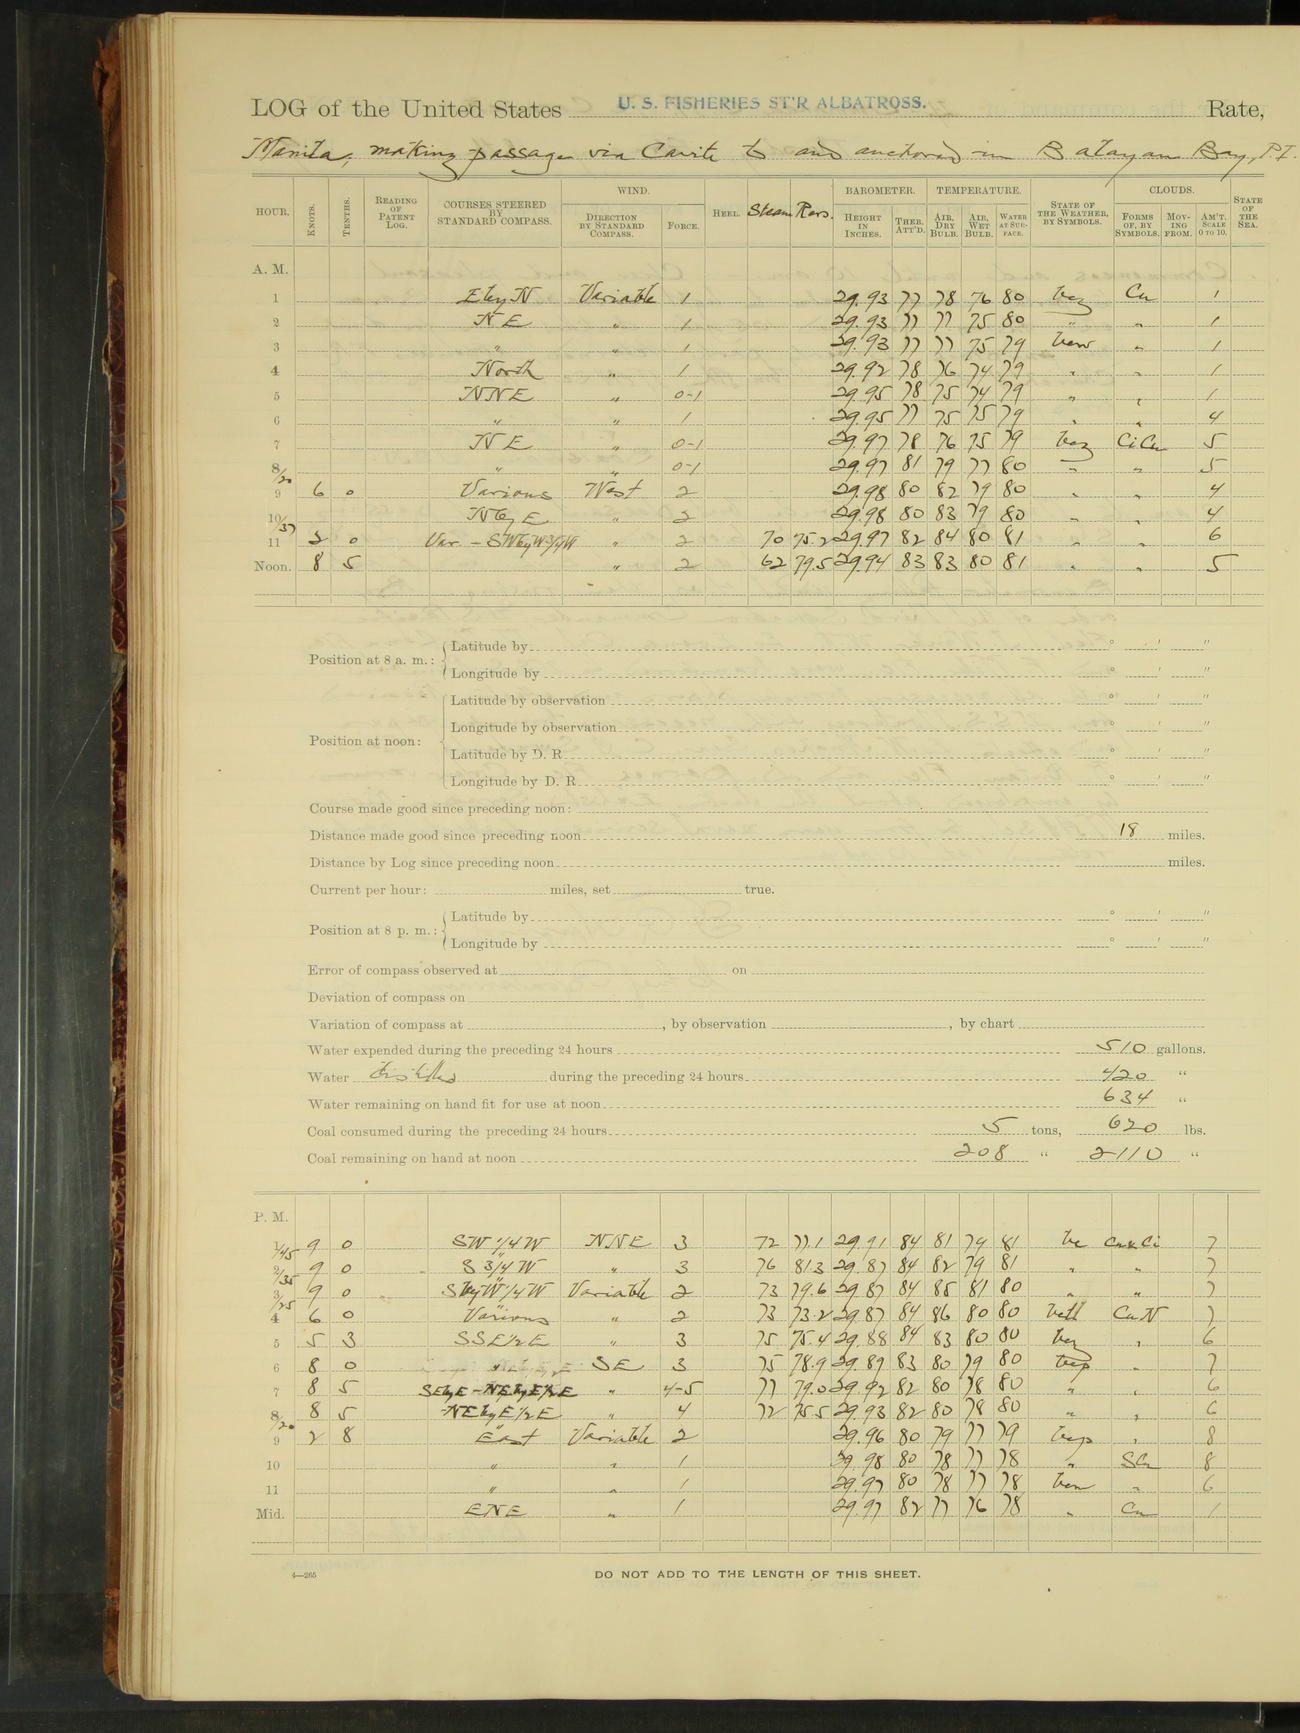 LOG of the United States U. S. FISHERIES ST'R ALBATROSS. Rate,
Manila, making passage via Cavite to and anchored in Batayan Bay, P.I.
HOUR. KNOTS. TENTHS. READING OF PATENT LOG. COURSES STEERED BY STANDARD COMPASS. WIND. DIRECTION BY STANDARD COMPASS. FORCE. HEEL. Steam Revs. BAROMETER. HEIGHT IN INCHES. THER. ATT'D. TEMPERATURE. AIR, DRY BULB. AIR, WET BULB. WATER AT SURFACE. STATE OF THE WEATHER, BY SYMBOLS. CLOUDS. FORMS OF, BY SYMBOLS. MOVING FROM. AM'T. SCALE 0 TO 10. STATE OF THE SEA.
A. M.
1 E by N Variable 1 29.93 77 78 76 80 bcz Cu 1
2 NE " 1 29.93 77 77 75 80 " " 1
3 " " 1 29.93 77 77 75 79 bcw " 1
4 North " 1 29.92 78 76 74 79 " " 1
5 NNE " 0-1 29.95 78 75 74 79 " " 1
6 " " 1 29.95 77 75 75 79 " " 4
7 NE " 0-1 29.97 78 76 75 79 bcz CiCu 5
8/20 " " 0-1 29.97 81 79 77 80 " " 5
9 6 0 Various West 2 29.98 80 82 79 80 " " 4
10/37 N by E " 2 29.98 80 83 79 80 " " 4
11 2 0 Var - SW by W 3/4 W " 2 70 75.2 29.97 82 84 80 81 " " 6
Noon. 8 5 " 2 62 79.5 29.94 83 83 80 81 " " 5
Position at 8 a. m.: Latitude by ° ′ ″
Longitude by ° ′ ″
Position at noon: Latitude by observation ° ′ ″
Longitude by observation ° ′ ″
Latitude by D. R. ° ′ ″
Longitude by D. R. ° ′ ″
Course made good since preceding noon:
Distance made good since preceding noon 18 miles.
Distance by Log since preceding noon miles.
Current per hour: miles, set true.
Position at 8 p. m.: Latitude by ° ′ ″
Longitude by ° ′ ″
Error of compass observed at on
Deviation of compass on
Variation of compass at , by observation , by chart
Water expended during the preceding 24 hours 510 gallons.
Water distilled during the preceding 24 hours 420 "
Water remaining on hand fit for use at noon 634 "
Coal consumed during the preceding 24 hours 5 tons, 620 lbs.
Coal remaining on hand at noon 208 " 2110 "
P. M.
1/45 9 0 SW 1/4 W NNE 3 72 77.1 29.91 84 81 79 81 bc Cu&Ci 7
2/35 9 0 S 3/4 W " 3 76 81.3 29.87 84 82 79 81 " " 7
3/25 9 0 S by W 1/4 W Variable 2 73 79.6 29.87 84 85 81 80 " " 7
4 6 0 Various " 2 73 73.2 29.87 84 86 80 80 CuN 7
5 5 3 SSE 1/2 E " 3 75 75.4 29.88 84 83 80 80 bcz " 6
6 8 0 " SE 3 75 78.9 29.89 83 80 79 80 bcp " 7
7 8 5 SE by E - NE by E 1/2 E " 4-5 77 79.0 29.92 82 80 78 80 " " 6
8/20 8 5 NE by E 1/2 E " 4 72 75.5 29.93 82 80 78 80 " " 6
9 2 8 East Variable 2 29.96 80 79 77 79 bcp " 8
10 " " 1 29.98 80 78 77 78 " SCu 8
11 " " 1 29.97 80 78 77 78 bcw " 6
Mid. ENE " 1 29.97 82 77 76 78 " Cu 1
4—265 DO NOT ADD TO THE LENGTH OF THIS SHEET.